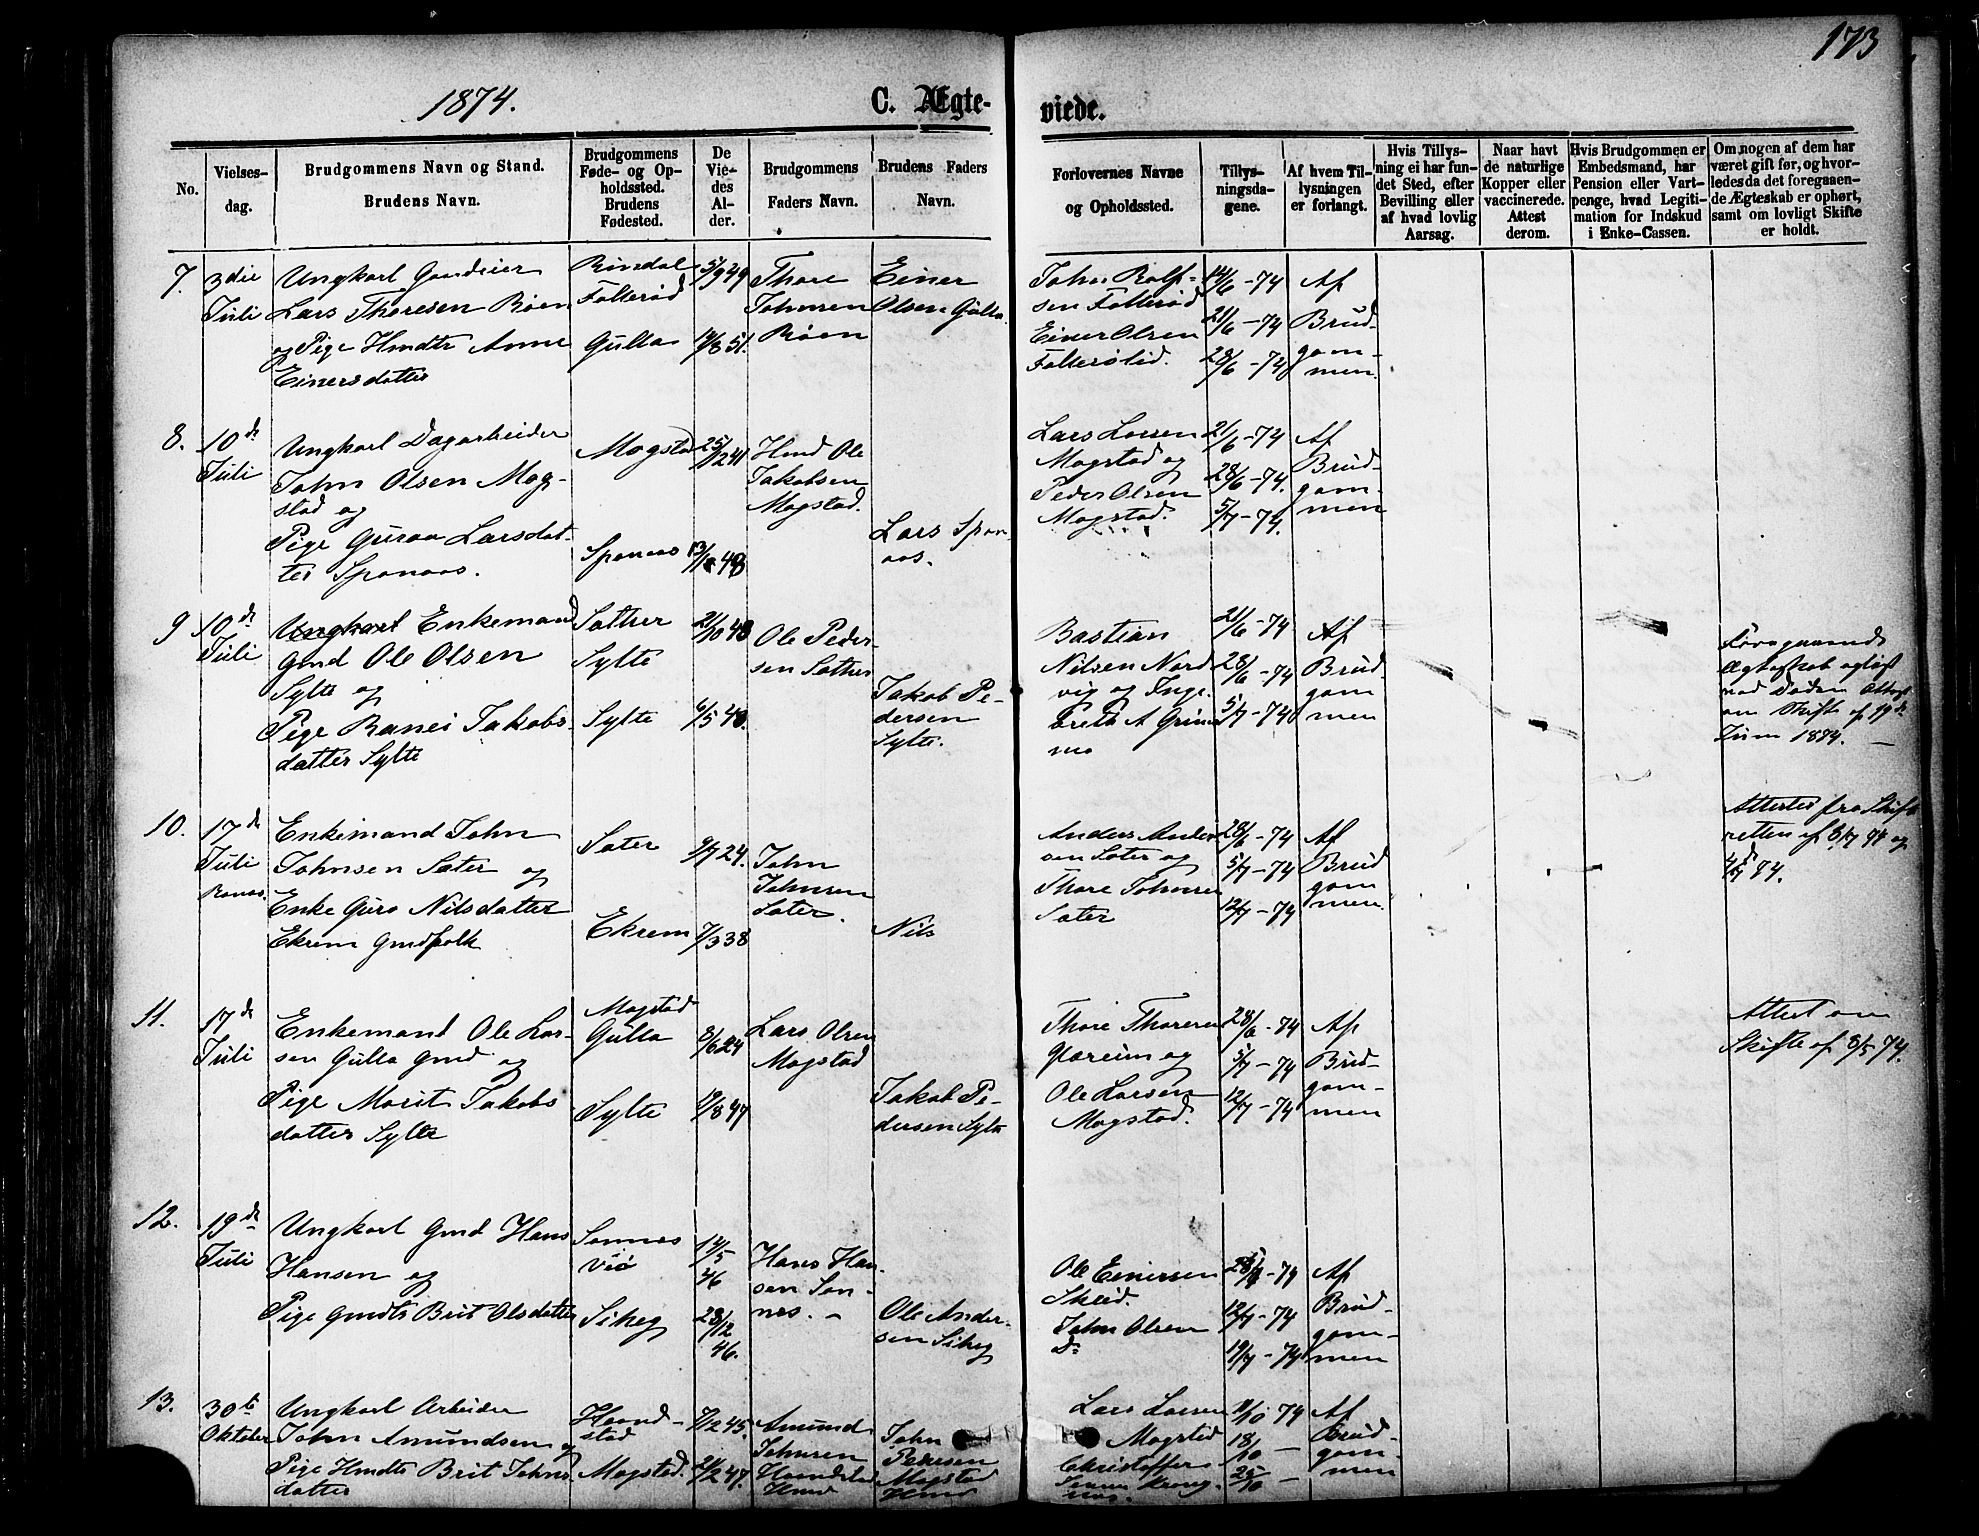 173
1874.
C. Ægte-
viede.
No.
Vielses-
dag.
Brudgommens Navn og Stand.
Brudens Navn.
Brudgommens
Føde- og Op-
holdssted.
Brudens
Fødested.
De
Vie-
des
Al-
der.
Brudgommens
Faders Navn.
Brudens Faders
Navn.
Forlovernes Navne
og Opholdssted.
Tillys-
ningsda-
gene.
Af hvem Til-
lysningen
er forlangt.
Hvis Tillys-
ning ei har fun-
det Sted, efter
Bevilling eller
af hvad lovlig
Aarsag.
Naar havt
de naturlige
Kopper eller
vaccinerede.
Attest
derom.
Hvis Brudgommen er
Embedsmand, har
Pension eller Vart-
penge, hvad Legiti-
mation for Indskud
i Enke-Cassen.
Om nogen af dem har
været gift før, og hvor-
ledes da det foregaaen-
de Ægteskab er ophørt,
samt om lovligt Skifte
er holdt.
7.
3die
Juli
Ungkarl Gaardeier
Lars Thoresen Røen
og Pige Hmdtr Anne
Einersdatter
Rindal
Folterød
Gulla
5/9 49
Thore
Johnsen
Røen
Einer
Olsen Gulla.
John Rolf-
sen Folterød
Einer Olsen
14/6 - 74
21/6 - 74
28/6 - 74
Af
Brud-
gom-
men.
8.
10de
Juli
Ungkarl Dagarbeider
John Olsen Mog-
stad og
Pige Guroa Larsdat-
ter Sponaas.
Mogstad
Sponaas
25/12 41
Hmd Ole
Jakobsen
Mogstad.
Lars Spon-
aas.
Lars Larsen
Mogstad og
Peder Olsen
Mogstad.
21/6 - 74
28/6 - 74.
5/7 - 74.
Af
Brud-
gom-
men
9
10de
Juli
Ungkarl Enkemand
Gmd Ole Olsen
Sylte og
Pige Ranei Jakobs-
datter Sylte
Sæther
Sylte
Sylte
21/10 48
6/5 48.
Ole Peder-
sen Sæther
Jakob Pe-
dersen
Sylte.
Bastian
Nilsen Nord
vig og Inge-
21/6 - 74
28/6 - 74
5/7 - 74
Af
Brud
gom
men
Foregaaende
Ægteskab opløst
ved Døden Attest
om Skifte af 19de
Juni 1874.
10.
17de
Juli
Enkemand John
Johnsen Sæter og
Enke Guro Nilsdatter
Ekrem Gmdfolk
Sæter
Ekrem
9/7 24.
7/3 38
John
Johnsen
Sæter.
Nils
Anders Ander
sen Sæter og
Thore Johnsen
Sæter
28/6 - 74
5/7 - 74
12/7 - 74
Af
Brud
gom
men.
Attester fra Skift
retten af 8/7 74 og
74.
11.
17de
Juli
Enkemand Ole Lar-
sen Gulla Gmd og
Pige Marit Jakobs
datter Sylte
Mogstad
Gulla
Sylte
8/6 24
Lars Olsen
Mogstad
Jakob Pe-
dersen Sylte
Thore Thoresen
Glæreim og
Ole Larsen
Mogstad.
28/6 - 74
5/7 - 74
12/7 - 74
Af
Brud-
gom-
men
Attest om
Skifte af 8/5 74.
12.
19de
Juli
Ungkarl Gmd Hans
Hansen og
Pige Gmdtr Brit Olsdatter
Sonnes
Sikeg
14/5
46
28/12
46.
Hans Han-
sen Son-
nes. -
Ole Ander-
sen Sikeg
Ole Einersen
Skeid.
John Olsen
Do
12/7 - 74
19/7 - 74
Af
Brud-
gom-
men
13.
30te
Oktober
Ungkarl Arbeider
John Amundsen og
Pige Hmdtr Brit Johns-
datter
Haand-
stad
Mogstad.
7/12 45.
21/2 47.
Amund
Johnsen
Haandstad
Hmd
John
Pedersen
Mogstad
Hmd
Lars Larsen
Mogstad
Christoffer
11/10 74
18/10 -
25/10 -
Af
Brud-
gom-
men